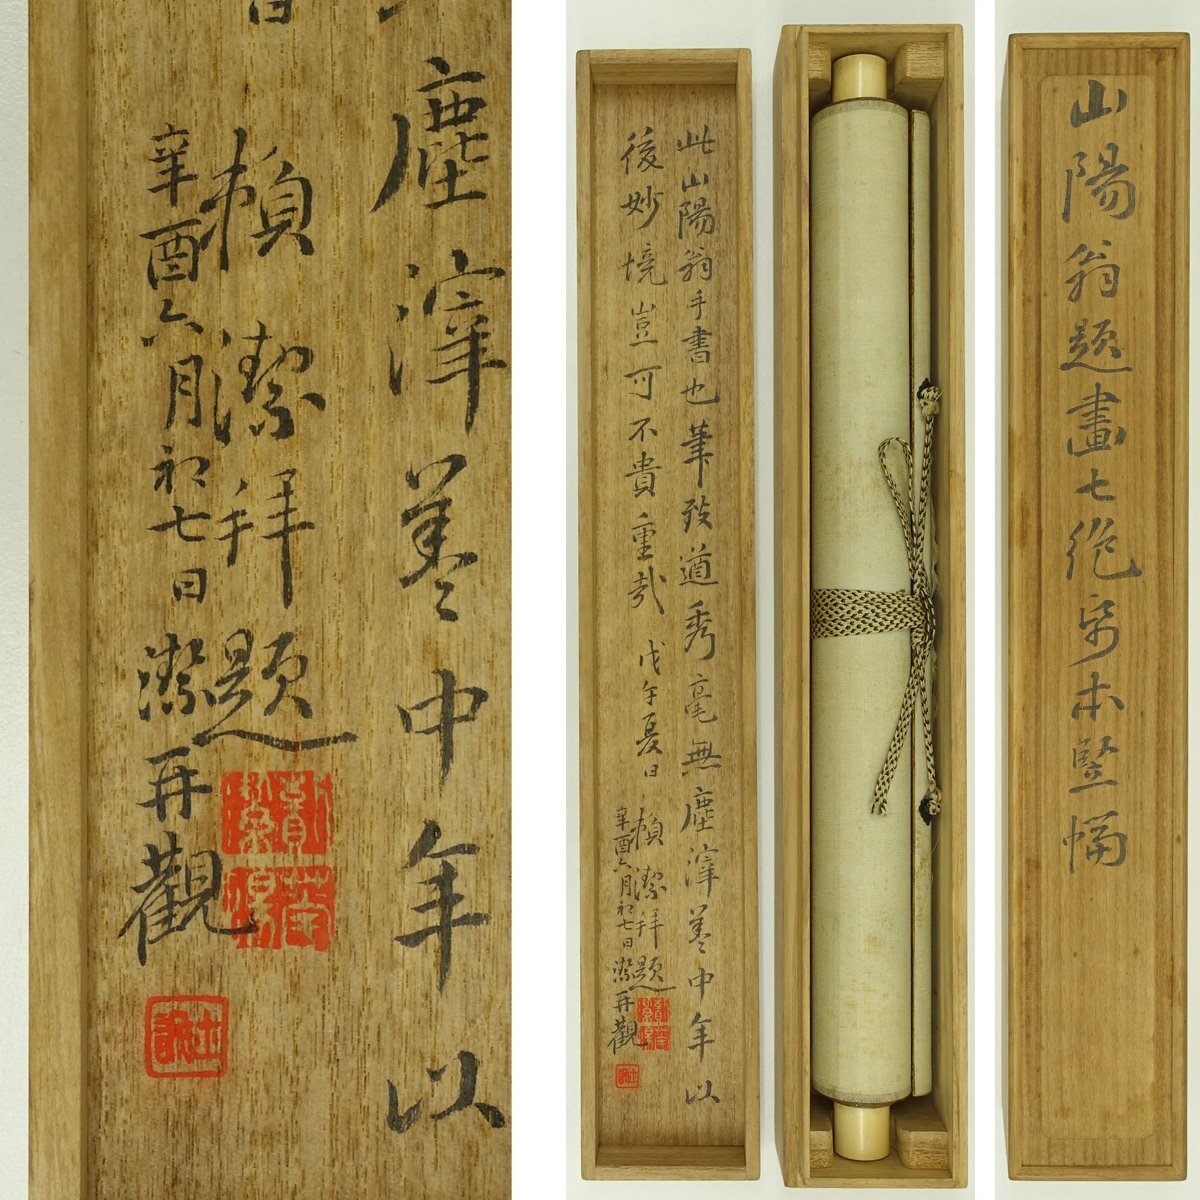 山陽翁題畫七絶寄本竪幅
此山陽翁手書也筆致遒秀毫無塵滓蓋中年以
後妙境豈可不貴重哉 戊午夏日 頼潔拜題
辛酉六月初七日潔再觀
塵滓蓋中年以
頼潔拜題
辛酉六月初七日潔再觀